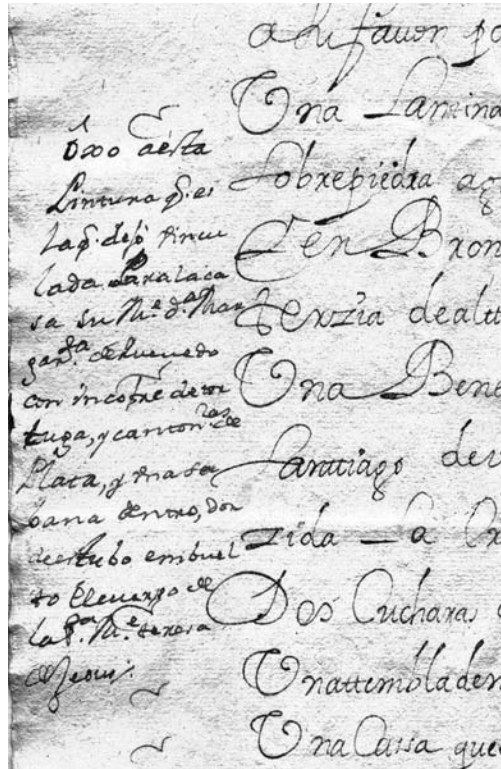 a su fauor po
Una Lamina
sobre piedra ag
en Bron
terzia de alt
Una Bene
Santtiago de
zida – La
Dos Cucharas
Una ttembladera
Una Caxa que
Ôxo aésta
Pintura q̃. es
la q̃. dejó vincu
lada Para la ca
sa su M.e d.a Mar
gar.ta de
con un cofre de tor
tuga, y canton.ras de
Plata, y una sa
bana dentro, don
de estubo embuel
to el cuerpo de
la S.ta M.e teresa
de Jesus.